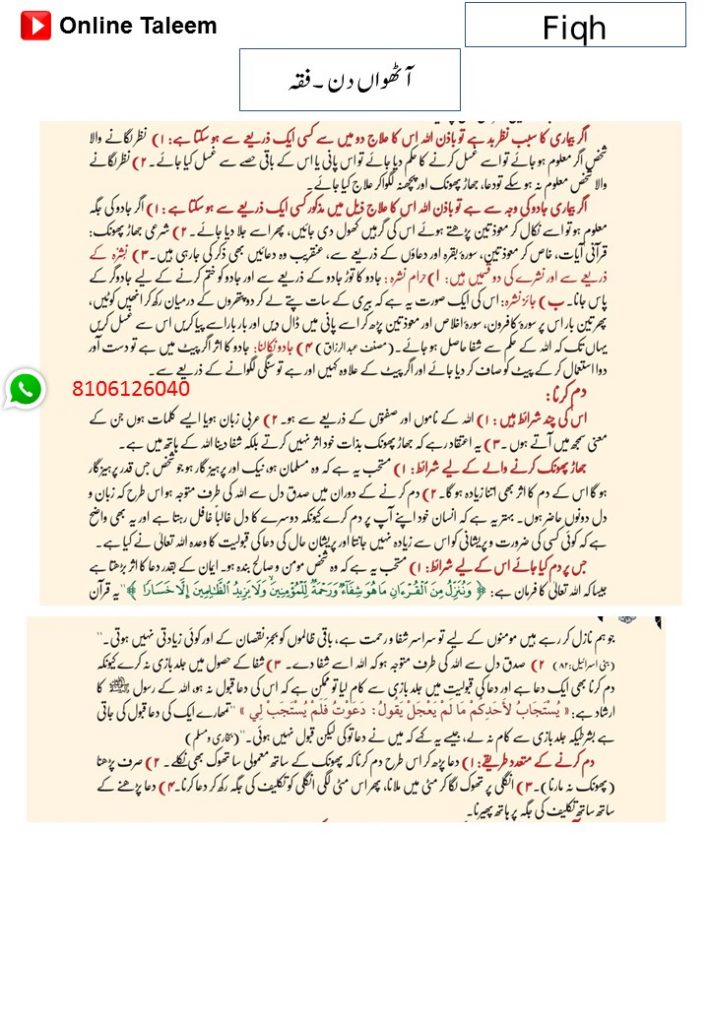 Online Taleem
Fiqh
آٹھواں دن ۔ فقہ
اگر بیماری کا سبب نظر بد ہے تو باذن اللہ اس کا علاج دو میں سے کسی ایک ذریعے سے ہو سکتا ہے: ۱) نظر لگانے والا
شخص اگر معلوم ہو جائے تو اسے غسل کرنے کا حکم دیا جائے تو اس پانی یا اس کے باقی حصے سے غسل کیا جائے۔ ۲) نظر لگانے
والا شخص معلوم نہ ہو سکے تو دعا، جھاڑ پھونک اور پچھنہ لگوا کر علاج کیا جائے۔
اگر بیماری جادو کی وجہ سے ہے تو باذن اللہ اس کا علاج ذیل میں مذکور کسی ایک ذریعے سے ہو سکتا ہے: ۱) اگر جادو کی جگہ
معلوم ہو تو اسے نکال کر معوذتین پڑھتے ہوئے اس کی گرہیں کھول دی جائیں، پھر اسے جلا دیا جائے۔ ۲) شرعی جھاڑ پھونک:
قرآنی آیات، خاص کر معوذتین، سورۂ بقرہ اور دعاؤں کے ذریعے سے، عنقریب وہ دعائیں بھی ذکر کی جا رہی ہیں۔ ۳) نُشرہ کے
ذریعے سے اور نشرے کی دو قسمیں ہیں: ا) حرام نشرہ: جادو کا توڑ جادو کے ذریعے سے اور جادو کو ختم کرنے کے لیے جادوگر کے
پاس جانا۔ ب) جائز نشرہ: اس کی ایک صورت یہ ہے کہ بیری کے سات پتے لے کر دو پتھروں کے درمیان رکھ کر انھیں کوٹیں،
پھر تین بار اس پر سورۂ کافرون، سورۂ اخلاص اور معوذتین پڑھ کر اسے پانی میں ڈال دیں اور بار بار اسے پیا کریں اس سے غسل کریں
یہاں تک کہ اللہ کے حکم سے شفا حاصل ہو جائے۔ (مصنف عبدالرزاق) ۴) جادو نکالنا: جادو کا اثر اگر پیٹ میں ہے تو دست آور
دوا استعمال کر کے پیٹ کو صاف کر دیا جائے اور اگر پیٹ کے علاوہ کہیں اور ہے تو سنگی لگوانے کے ذریعے سے۔
8106126040
دم کرنا:
اس کی چند شرائط ہیں: ۱) اللہ کے ناموں اور صفتوں کے ذریعے سے ہو۔ ۲) عربی زبان ہو یا ایسے کلمات ہوں جن کے
معنی سمجھ میں آتے ہوں۔ ۳) یہ اعتقاد رہے کہ جھاڑ پھونک بذات خود اثر نہیں کرتے بلکہ شفا دینا اللہ کے ہاتھ میں ہے۔
جھاڑ پھونک کرنے والے کے لیے شرائط: ۱) مستحب یہ ہے کہ وہ مسلمان ہو، نیک اور پرہیز گار ہو جو شخص جس قدر پرہیزگار
ہو گا اس کے دم کا اثر بھی اتنا زیادہ ہو گا۔ ۲) دم کرنے کے دوران میں صدق دل سے اللہ کی طرف متوجہ ہو اس طرح کہ زبان و
دل دونوں حاضر ہوں۔ بہتر یہ ہے کہ انسان خود اپنے آپ پر دم کرے کیونکہ دوسرے کا دل غالباً غافل رہتا ہے اور یہ بھی واضح
ہے کہ کوئی کسی کی ضرورت و پریشانی کو اس سے زیادہ نہیں جانتا اور پریشان حال کی دعا کی قبولیت کا وعدہ اللہ تعالیٰ نے کیا ہے۔
جس پر دم کیا جائے اس کے لیے شرائط: ۱) مستحب یہ ہے کہ وہ شخص مومن و صالح بندہ ہو۔ ایمان کے بقدر دعا کا اثر بڑھتا ہے
جیسا کہ اللہ تعالیٰ کا فرمان ہے: ﴿ وَنُنَزِّلُ مِنَ الْقُرْءَانِ مَا هُوَ شِفَآءٌ وَرَحْمَةٌ لِّلْمُؤْمِنِينَ وَلَا يَزِيدُ الظَّالِمِينَ إِلَّا خَسَارًا ﴾ "یہ قرآن
جو ہم نازل کر رہے ہیں مومنوں کے لیے تو سراسر شفا و رحمت ہے، باقی ظالموں کو بجز نقصان کے اور کوئی زیادتی نہیں ہوتی۔"
(بنی اسرائیل: ۸۲) ۲) صدق دل سے اللہ کی طرف متوجہ ہو کہ اللہ اسے شفا دے۔ ۳) شفا کے حصول میں جلد بازی نہ کرے کیونکہ
دم کرنا بھی ایک دعا ہے اور دعا کی قبولیت میں جلد بازی سے کام لیا تو ممکن ہے کہ اس کی دعا قبول نہ ہو، اللہ کے رسول ﷺ کا
ارشاد ہے: « يُسْتَجَابُ لأَحَدِكُمْ مَا لَمْ يَعْجَلْ يَقُولُ: دَعَوْتُ فَلَمْ يُسْتَجَبْ لِي » "تمھارے ایک کی دعا قبول کی جاتی
ہے بشرطیکہ جلد بازی سے کام نہ لے، جیسے یہ کہے کہ میں نے دعا تو کی لیکن قبول نہیں ہوئی۔" (بخاری و مسلم)
دم کرنے کے متعدد طریقے: ۱) دعا پڑھ کر اس طرح دم کرنا کہ پھونک کے ساتھ معمولی سا تھوک بھی نکلے۔ ۲) صرف پڑھنا
(پھونک نہ مارنا)۔ ۳) انگلی پر تھوک لگا کر مٹی میں ملانا، پھر اس مٹی لگی انگلی کو تکلیف کی جگہ رکھ کر دعا کرنا۔ ۴) دعا پڑھنے کے
ساتھ ساتھ تکلیف کی جگہ پر ہاتھ پھیرنا۔